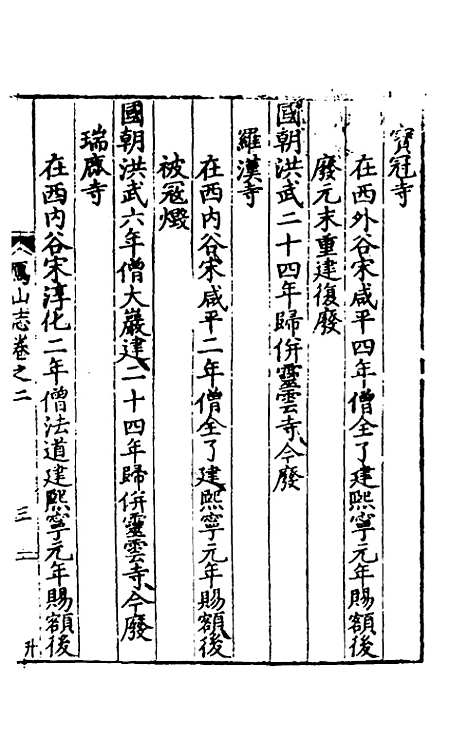 寶冠寺
在西外谷宋咸平四年僧全了建熙寧元年賜額後
廢元末重建復廢
國朝洪武二十四年歸併靈雲寺今廢
羅漢寺
在西內谷宋咸平二年僧全了建熙寧元年賜額後
被冦燬
國朝洪武六年僧大巖建二十四年歸併靈雲寺今廢
瑞鹿寺
在西內谷宋淳化二年僧法道建熙寧元年賜額後
鴈山志卷之二
三
升